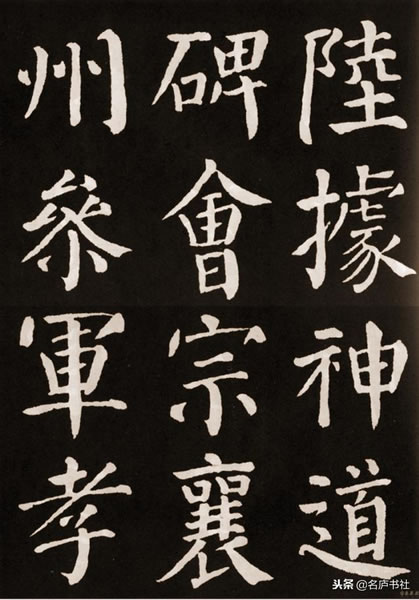 陸據神道
碑會宗襄
州參軍孝
头条 @名庐书社